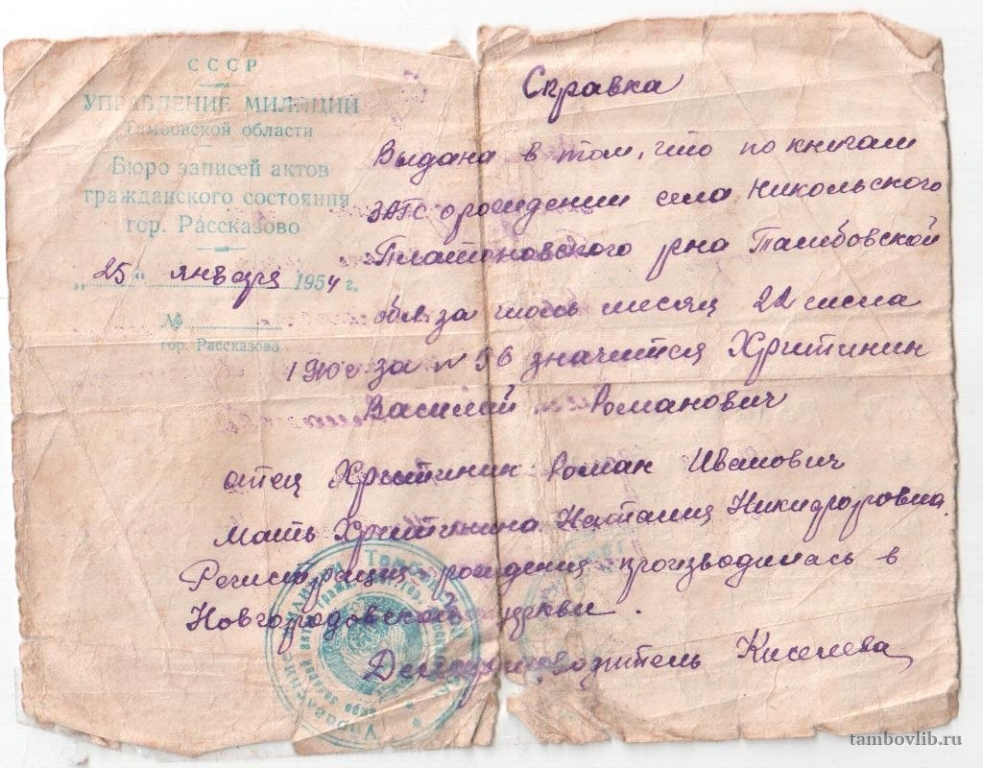 СССР
УПРАВЛЕНИЕ МИЛИЦИИ
Тамбовской области
Бюро записей актов
гражданского состояния
гор. Рассказово
„25" января 1954 г.
№
гор. Рассказово
Справка
Выдана в том, что по книгам
ЗАГС о рождении села Никольского
Платоновского рна Тамбовской
обл. за месяц 22 числа
за № 56 значится Хритинин
Василий Романович
отец Хритинин Роман Иванович
Мать Хритинина Наталия Никифоровна.
Регистрация рождения производилась в
Новгородовской церкви.
Делопроизводитель Киселева
tambovlib.ru